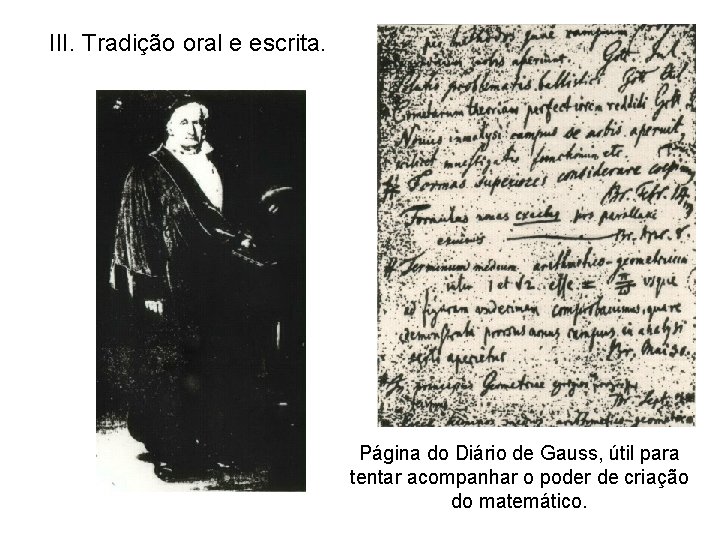 III. Tradição oral e escrita.
per methodos
Gott. Jul
problematis ballistici Gott
theoriam perfectiorem reddidi Gott
Novus in analysi campus se nobis aperuit,
scilicet investigatio functionum etc.
Formas superiores considerare
Br. Febr. 14
Formulas novas exactas pro parallaxi
Br. Apr. 8.
Terminum medium arithmetico-geometricum
inter 1 et √2 esse = π/ϖ usque
ad figuram undecimam comprobavimus, quare
demonstrata prorsus novus campus in analysi
certo aperietur Br. Mai 30.
principiis Geometriae
Br. Sept.
Página do Diário de Gauss, útil para
tentar acompanhar o poder de criação
do matemático.